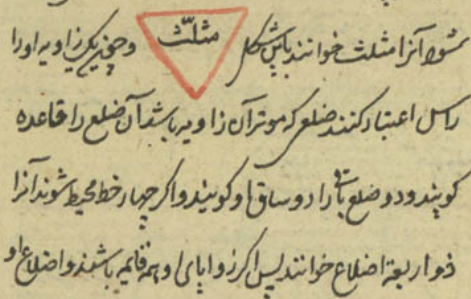 شود آنرا مثلث خوانند باین شکل مثلث و چون یک زاویه او را
راس اعتبار کنند ضلعی که موتر آن زاویه باشد آن ضلع را قاعده
گویند و دو ضلع باقی را دو ساق او گویند و اگر چهار خط محیط شوند آنرا
ذو اربعة اضلاع خوانند پس اگر زوایای او همه قایمه باشند و اضلاع او